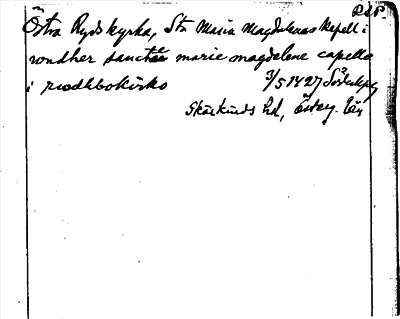 RAP.
Östra Ryds kyrka, Sta Maria Magdalenas kapell i
wndher sancte marie magdalene capelle
i rwdhbokirko 3/5 1427 Söderkpg
Skärkinds hd, Österg. län